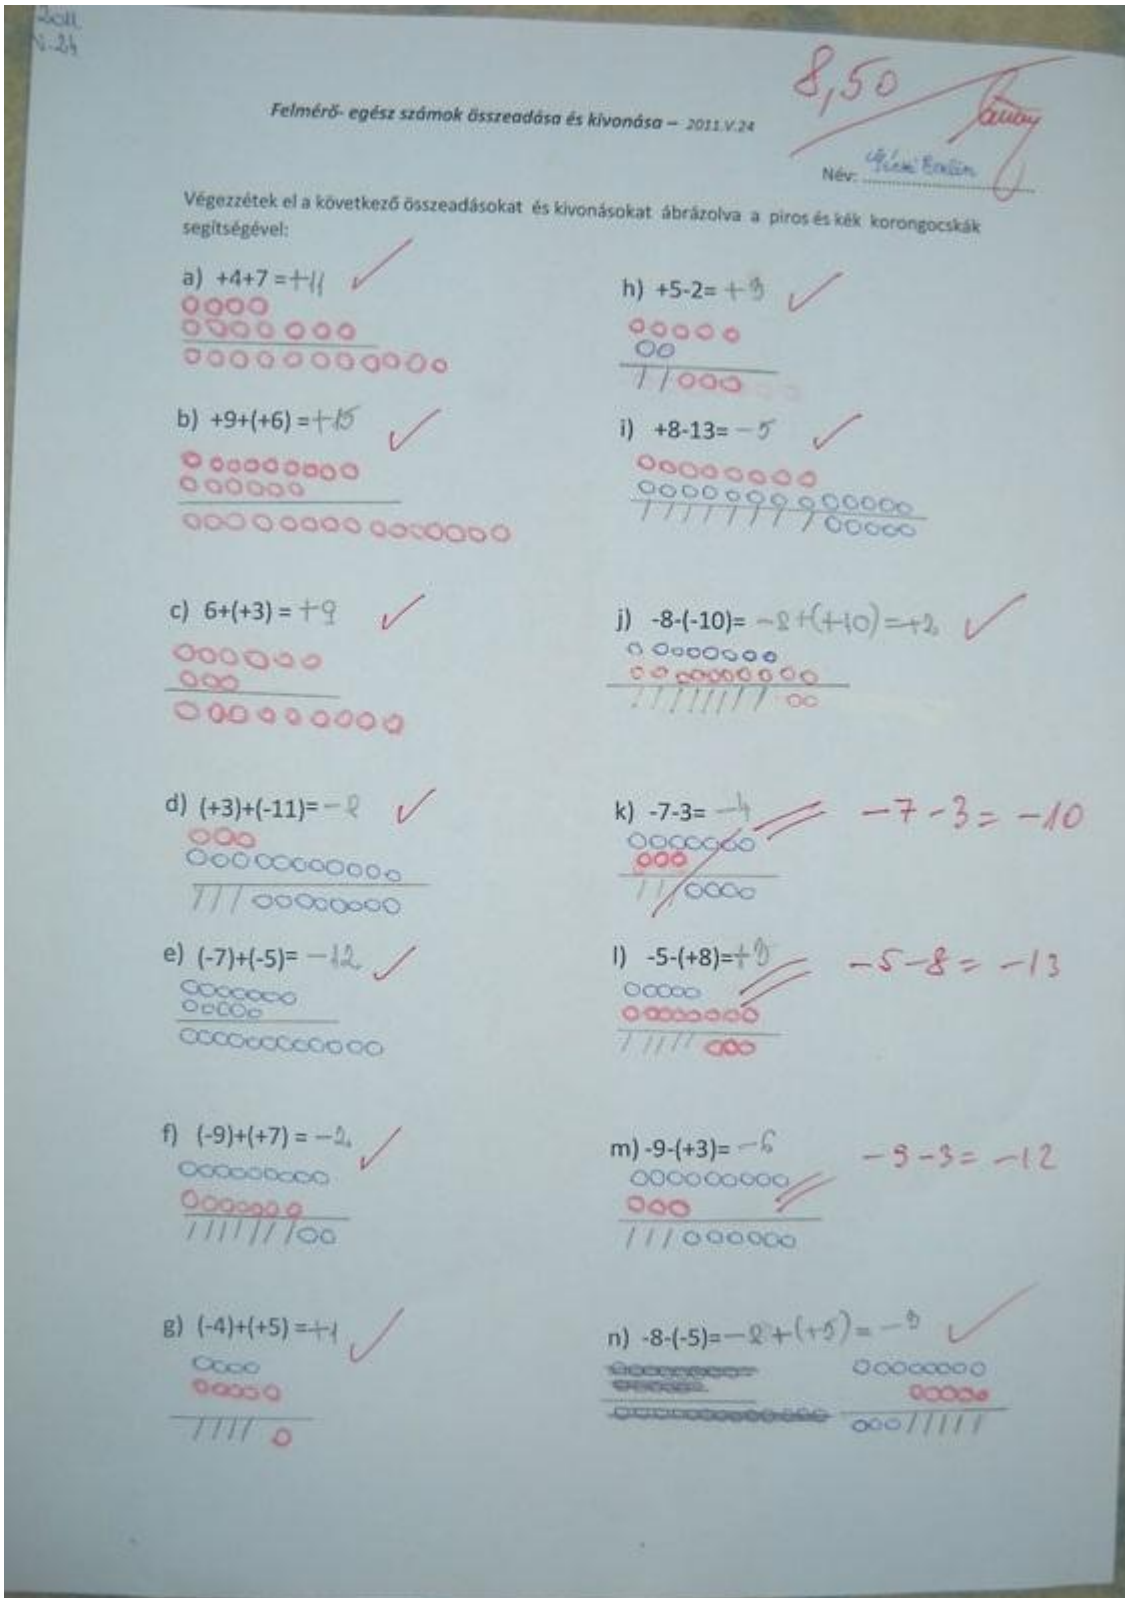 2011
V.24
8,50
Felmérő- egész számok összeadása és kivonása – 2011.V.24
Név:
Végezzétek el a következő összeadásokat és kivonásokat ábrázolva a piros és kék korongocskák
segítségével:
a) +4+7 =+11
b) +9+(+6) =+15
c) 6+(+3) = +9
d) (+3)+(-11)= -8
e) (-7)+(-5)= -12
f) (-9)+(+7) = -2
g) (-4)+(+5) =+1
h) +5-2= +3
i) +8-13= -5
j) -8-(-10)= -8+(+10)=+2
k) -7-3= -4 -7-3= -10
l) -5-(+8)=+3 -5-8= -13
m) -9-(+3)= -6 -9-3= -12
n) -8-(-5)=-8+(+5)= -3